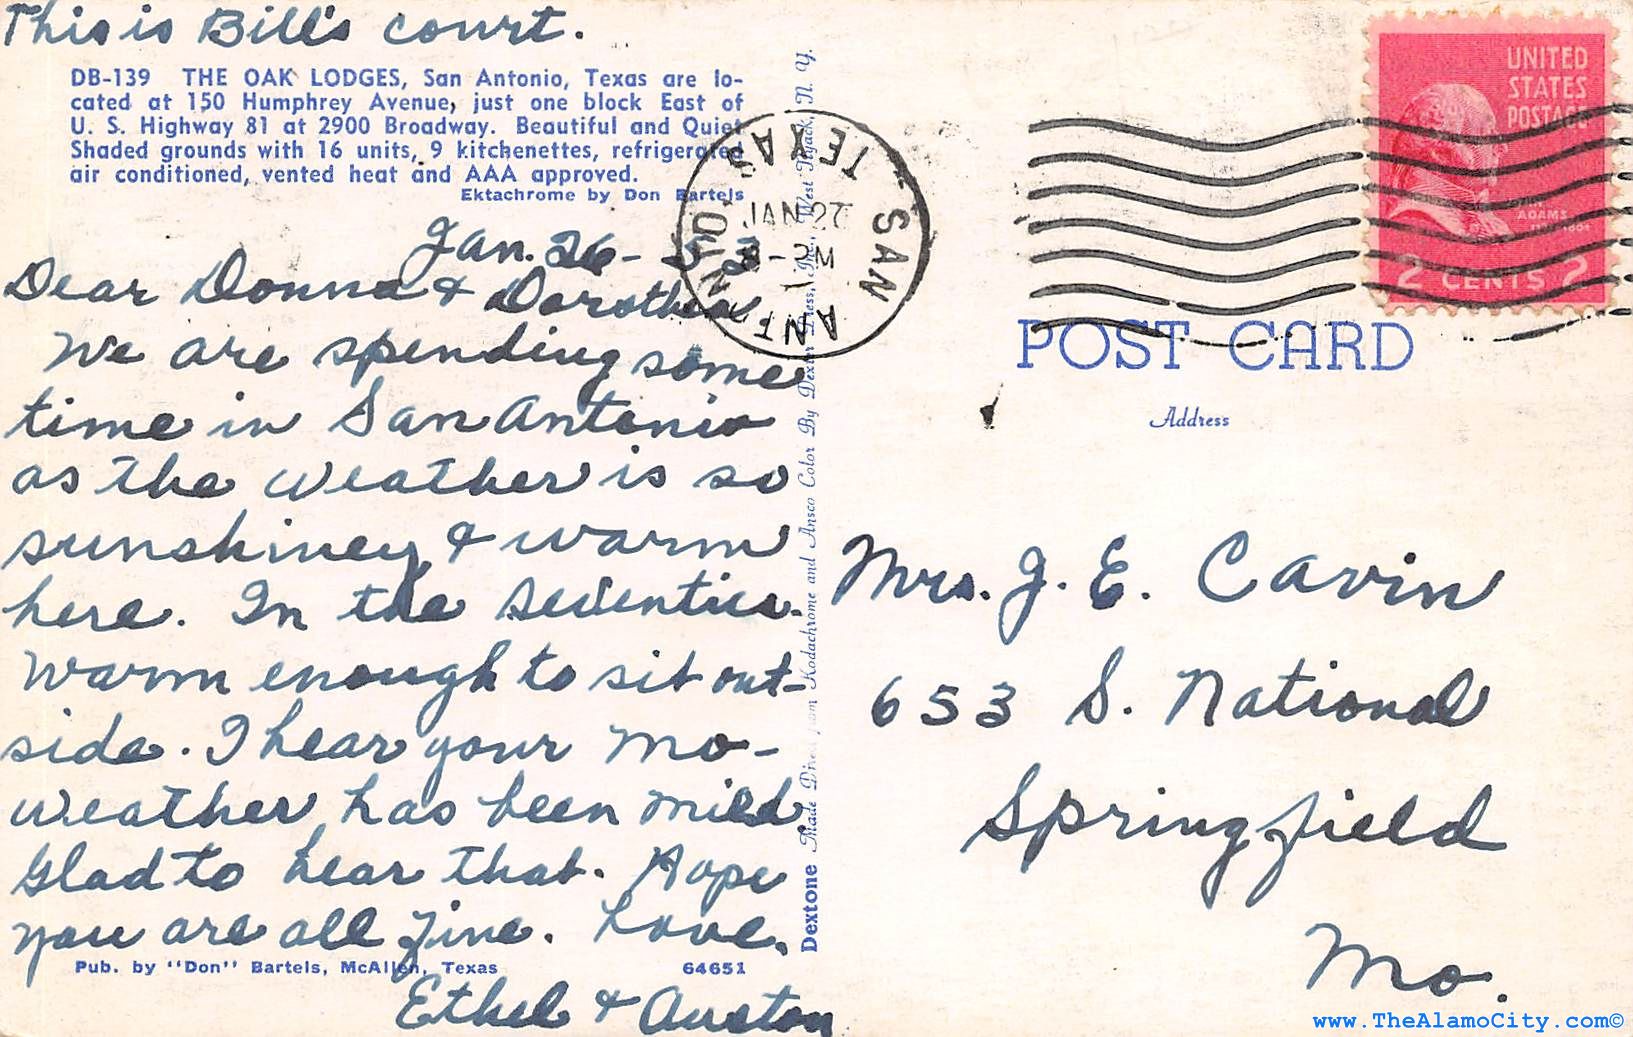 This is Bill's court.
DB-139 THE OAK LODGES, San Antonio, Texas are lo-
cated at 150 Humphrey Avenue, just one block East of
U. S. Highway 81 at 2900 Broadway. Beautiful and Quiet
Shaded grounds with 16 units, 9 kitchenettes, refrigerated
air conditioned, vented heat and AAA approved.
Ektachrome by Don Bartels
Jan. 26-53
Dear Donna & Dorothea
We are spending some
time in San Antonio
as the weather is so
sunshiney & warm
here. In the seventies.
Warm enough to sit out-
side. I hear your Mo-
weather has been mild.
Glad to hear that. Hope
you are all fine. Love,
Pub. by "Don" Bartels, McAllen, Texas 64651
Ethel & Auston
Dextone Made Direct from Kodachrome and Ansco Color By Dexter Press, Inc., West Nyack, N. Y.
SAN ANTONIO TEXAS
JAN 27
PM
UNITED
STATES
POSTAGE
ADAMS
2 CENTS 2
POST CARD
Address
Mrs. J. E. Cavin
653 S. National
Springfield
Mo.
www.TheAlamoCity.com©